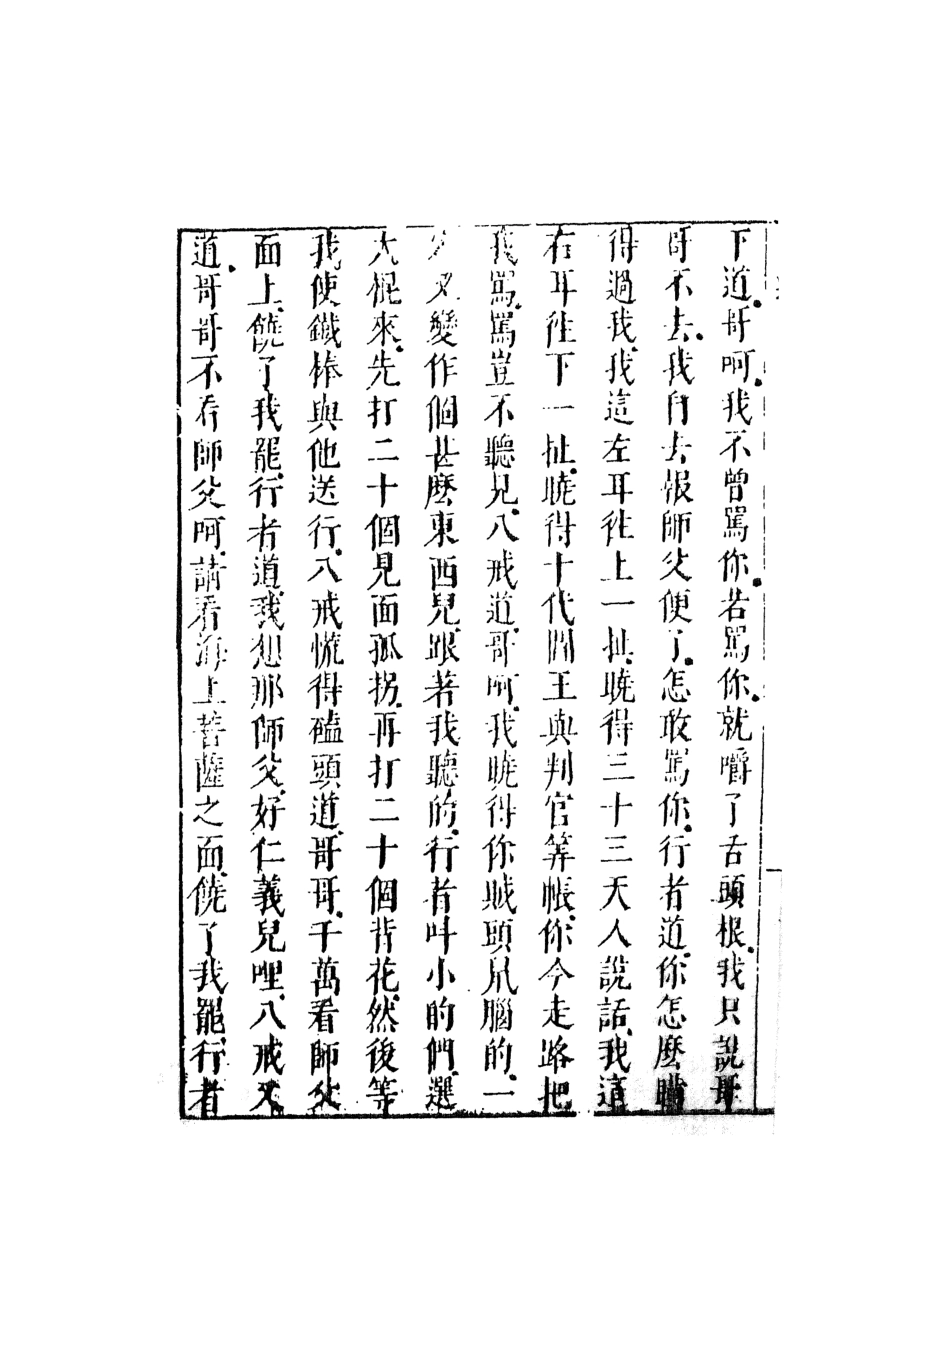 下道哥呵我不曾罵你若罵你就嚼了舌頭根我只說哥
哥不去我自去報師父便了怎敢罵你行者道你怎麼瞞
得過我我這左耳徃上一扯曉得三十三天人說話我這
右耳徃下一扯曉得十代閻王與判官筭帳你今走路把
我罵罵豈不聽見八戒道哥呵我曉得你賊頭鼠腦的一
又變作個甚麼東西兒跟著我聽的行者叫小的們選
大棍來先打二十個見面孤拐再打二十個背花然後等
我使鐵棒與他送行八戒慌得磕頭道哥哥千萬看師父
面上饒了我罷行者道我想那師父好仁義兒哩八戒又
道哥哥不看師父呵請看海上菩薩之面饒了我罷行者